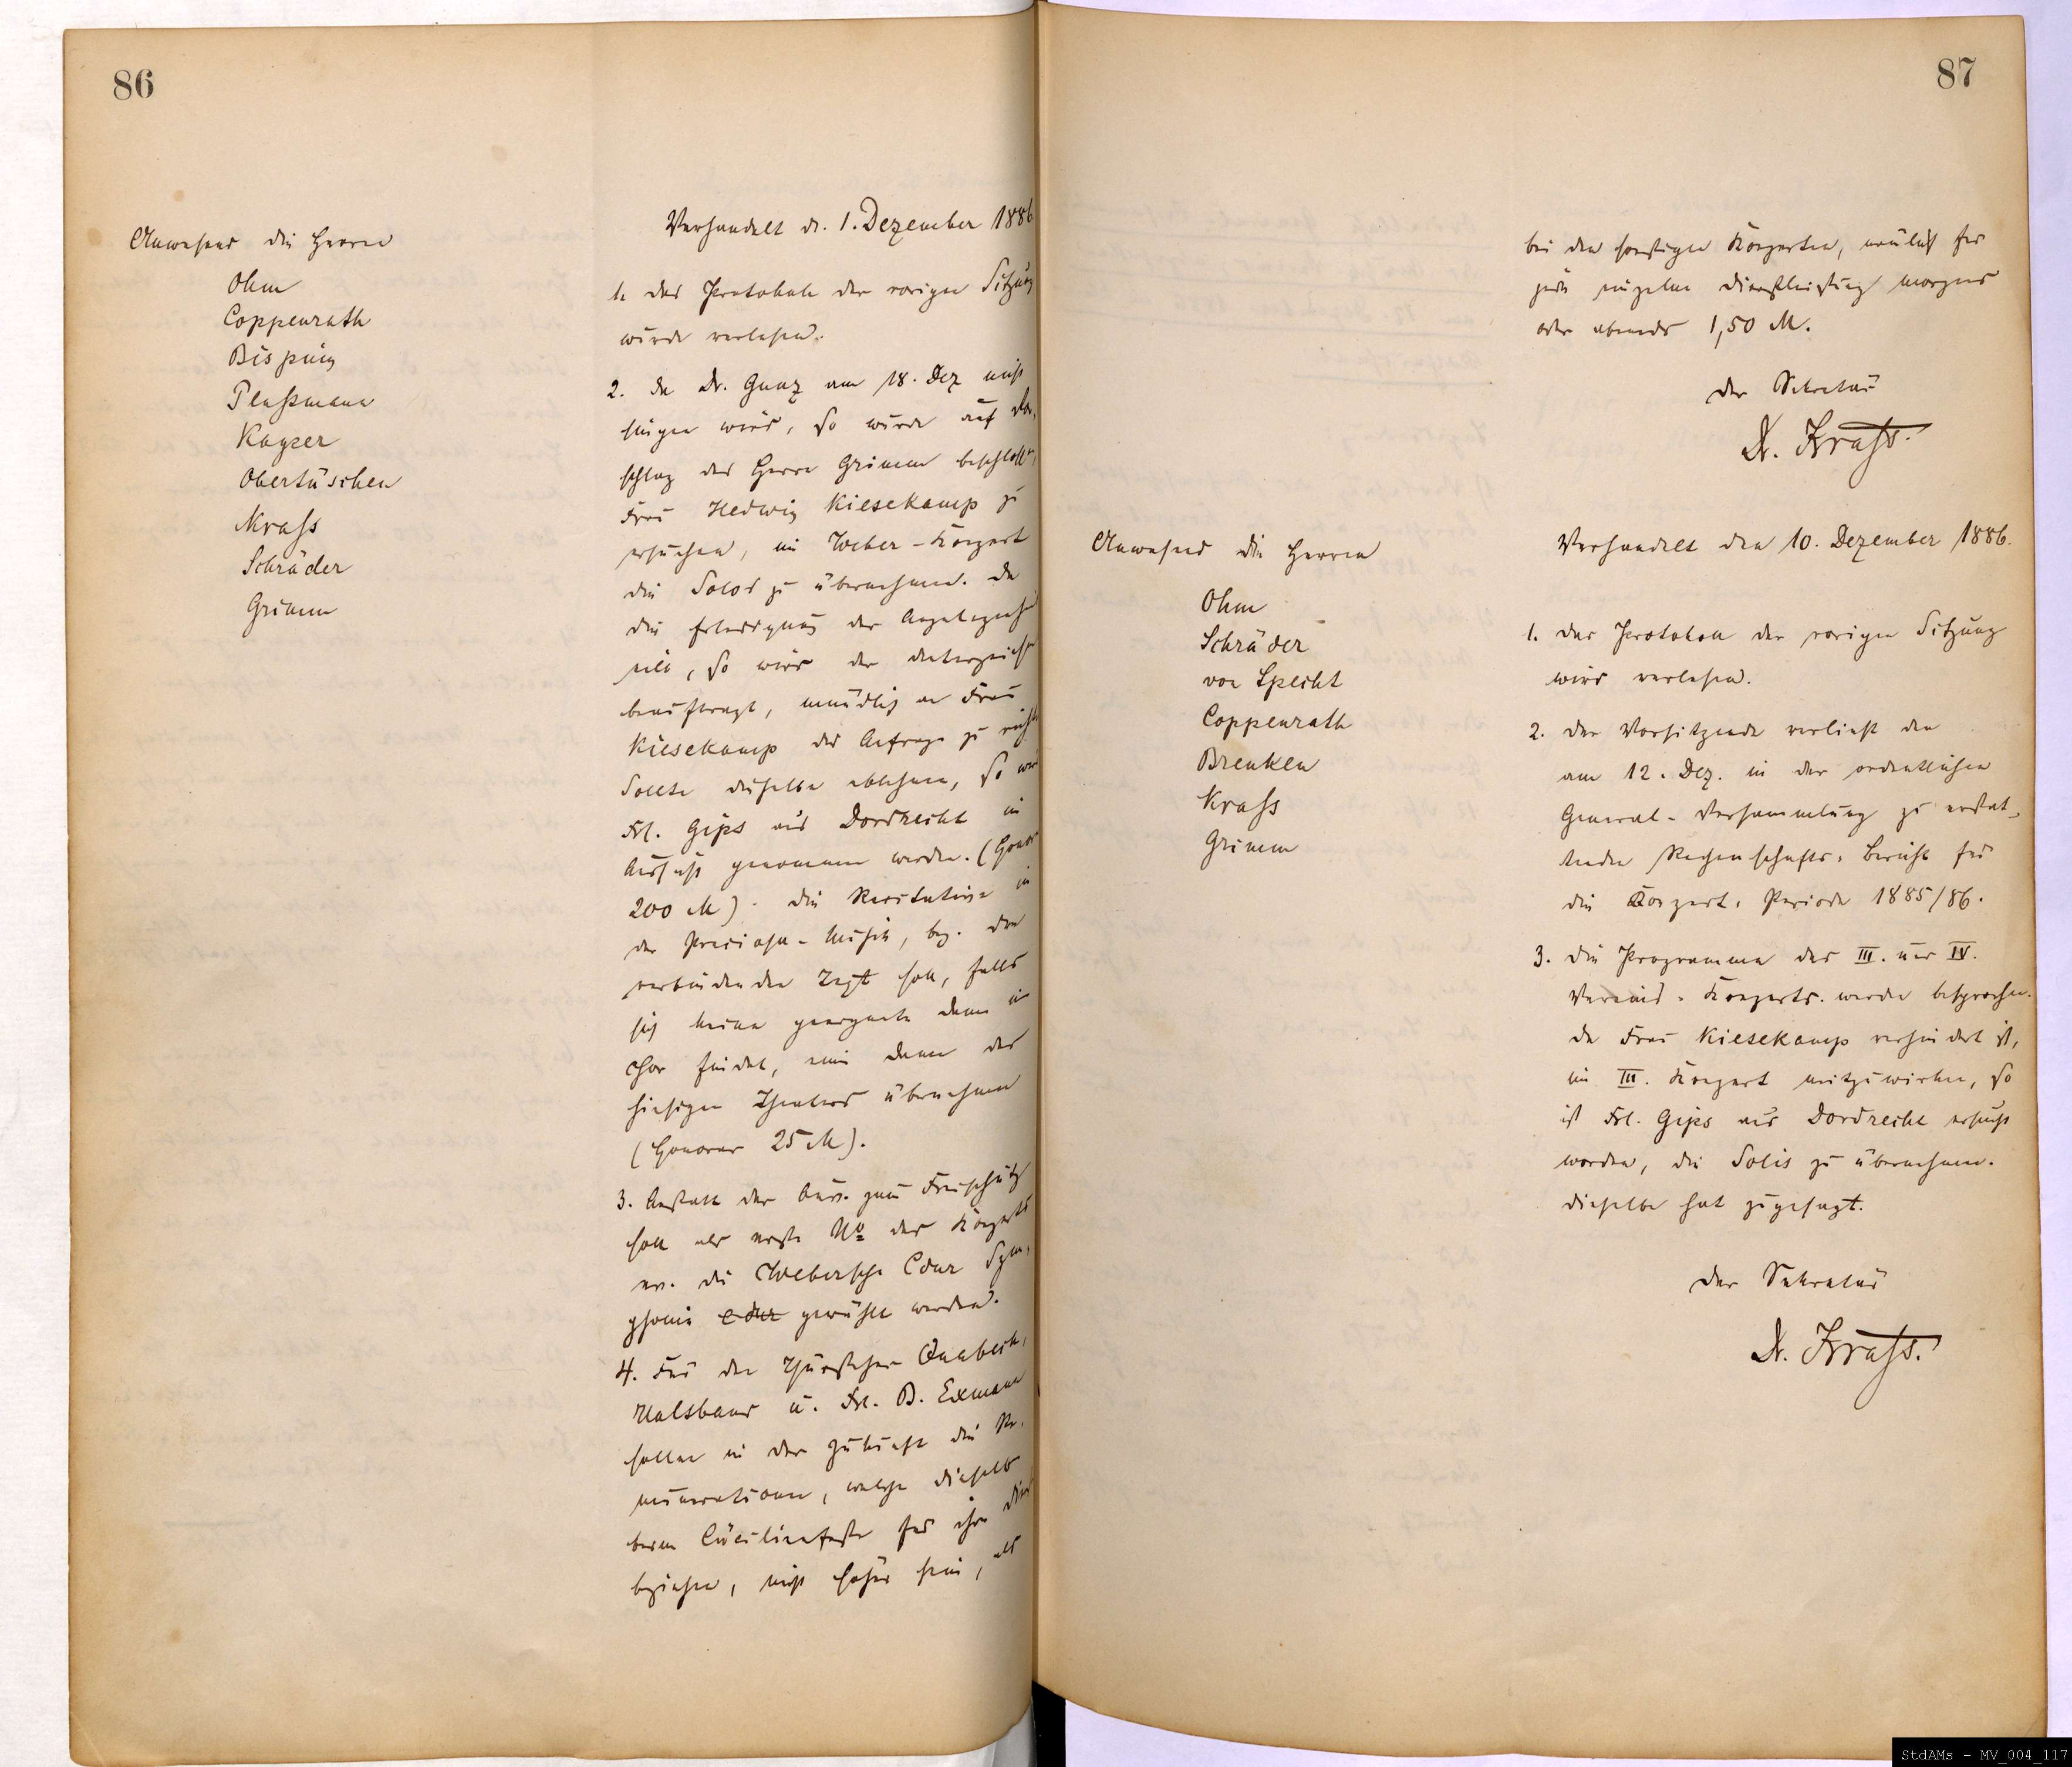 86
Anwesend die Herren
Ohm
Coppenrath
Bisping
Plaßmann
Kayser
Obertüschen
Krass
Schräder
Grimm
Verhandelt d. 1. Dezember 1886
1. Das Protokoll der vorigen Sitzung
wurde verlesen.
2. Da Dr. Gunz am 18. Dez nicht
singen wird, so wurde auf Vor-
schlag des Herrn Grimm beschlossen,
Frau Hedwig Kiesekamp zu
ersuchen, im Weber-Konzert
die Solos zu übernehmen. Da
die Erledigung der Angelegenheit
eilt, so wird der Unterzeichn
beauftragt, mündlich an Frau
Kiesekamp die Anfrage zu richt
Sollte dieselbe ablehnen, so wird
Frl. Gips aus Dordrecht in
Aussicht genommen werden. (Honor
200 M). Die Recitative in
der Preciosa-Musik, bez. den
verbindenden Text soll, falls
sich keine geeignete Dame im
Chor findet, eine Dame des
hiesigen Theaters übernehmen
(Honorar 25 M).
3. Anstatt der Ouv. zum Freischütz
soll als erste No des Konzerts
ev. die Webersche Cdur Sym-
phonie C dur gewählt werden.
4. Für den Thürsteher Quabeck,
Halsband u. Frl. B. Exmann
sollen in der Zukunft die Re-
munerationen, welche dieselb
beim Cäcilienfeste für ihre Dien
beziehen, nicht höher sein, als
87
bei den sonstigen Konzerten, nämlich für
jede einzelne Dienstleistung morgens
oder abends 1,50 M.
Der Sekretär
Dr. Krass.
Anwesend die Herren
Ohm
Schräder
von Specht
Coppenrath
Brenken
Krass
Grimm
Verhandelt den 10. Dezember 1886.
1. Das Protokoll der vorigen Sitzung
wird verlesen.
2. Der Vorsitzende verliest den
am 12. Dez. in der ordentlichen
General-Versammlung zu erstat-
tenden Rechenschafts-Bericht für
die Konzert-Periode 1885/86.
3. Die Programme des III. und IV.
Vereins-Konzerts werden besprochen.
Da Frau Kiesekamp verhindert ist,
im III. Konzert mitzuwirken, so
ist Frl. Gips aus Dordrecht ersucht
worden, die Solis zu übernehmen.
Dieselbe hat zugesagt.
Der Sekretär
Dr. Krass.
StdAMs - MV_004_117